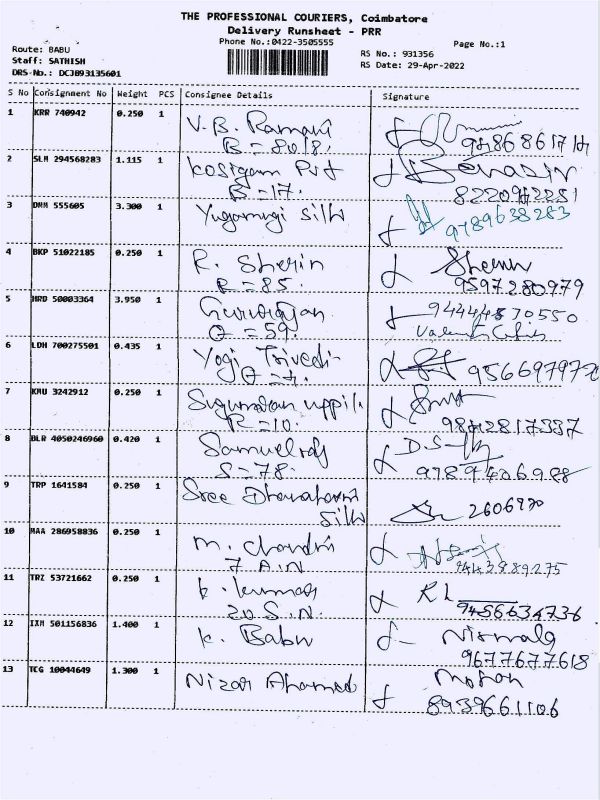 THE PROFESSIONAL COURIERS, Coimbatore
Delivery Runsheet - PRR
Phone No.:0422-3505555
Page No.:1
Route: BABU
Staff: SATHISH
DRS No.: DCJB93135601
RS No.: 931356
RS Date: 29-Apr-2022
S No Consignment No Weight PCS Consignee Details Signature
1 KRR 740942 0.250 1 V.B. Ramani
B = 8018.
2 SLM 294568283 1.115 1 Kosigam Pvt
B = 17. 8220942251
3 DMM 555605 3.300 1 Yugamugi Silks 9789638283
4 BKP 51022185 0.250 1 R. Sherin Sherin
R = 85. 9597280979
5 HRD 50003364 3.950 1
O = 59.
6 LDH 700275501 0.435 1 Yogi Trivedi
7 KMU 3242912 0.250 1
R = 10. 9842817337
8 BLR 4050246960 0.420 1 Samuelraj D.S
S = 78.
9 TRP 1641584 0.250 1 Sree
Silks
10 MAA 286958836 0.250 1 M. Chandri
7 A.N 9443889275
11 TRZ 53721662 0.250 1 K. Kumar
20 S.N. 9456634736
12 IXM 501156836 1.400 1 K. Babu Nirmala
9677677618
13 TCG 10044649 1.300 1 Nizar Ahamed Mohan
8939661106